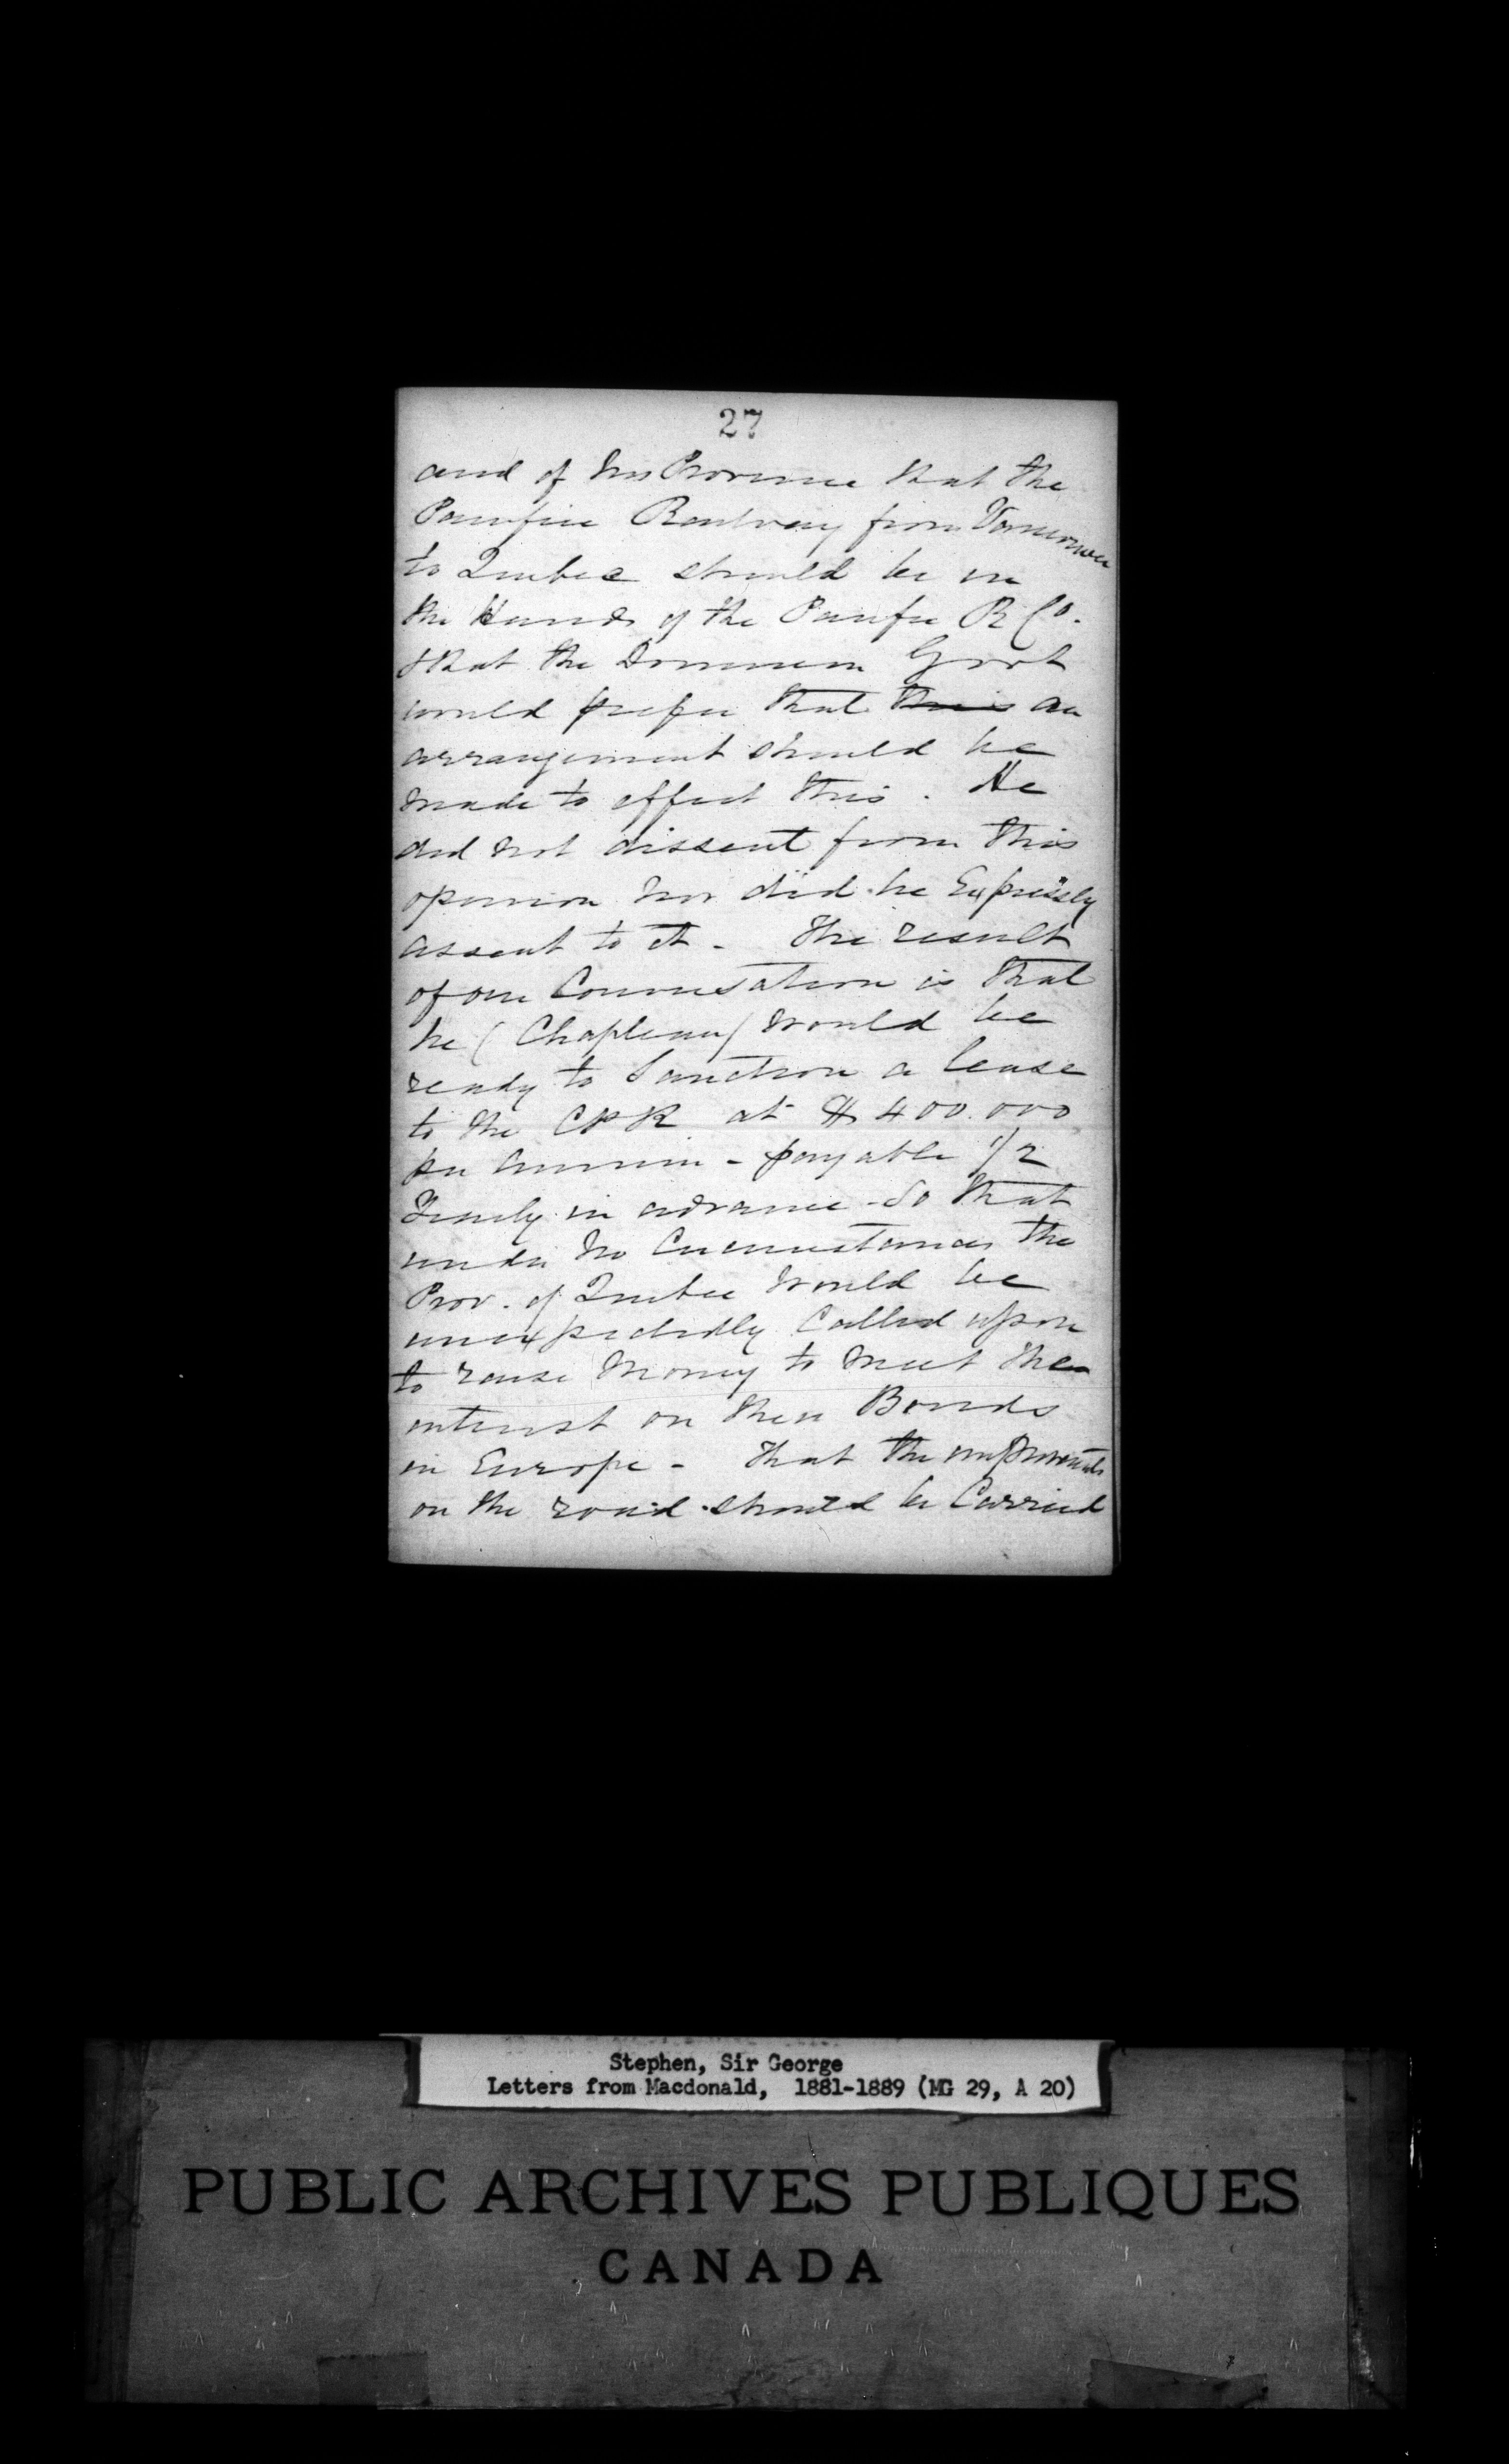 27
and of his Province that the
Pacific Railway from Vancouver
to Quebec should be in
the Hands of the Pacific R Co.
& that the Dominion Govt
would prefer that this an
arrangement should be
made to effect this. He
did not dissent from this
opinion nor did he Expressly
assent to it - The result
of our Conversation is that
he (Chapleau) would be
ready to Sanction a lease
to the CPR at $400.000
per Annum - payable 1/2
Yearly in advance - So that
under no Circumstances the
Prov. of Quebec would be
unexpectedly Called upon
to raise money to meet the
interest on their Bonds
in Europe - That the improvements
on the road should be Carried
Stephen, Sir George
Letters from Macdonald, 1881-1889 (MG 29, A 20)
PUBLIC ARCHIVES PUBLIQUES
CANADA